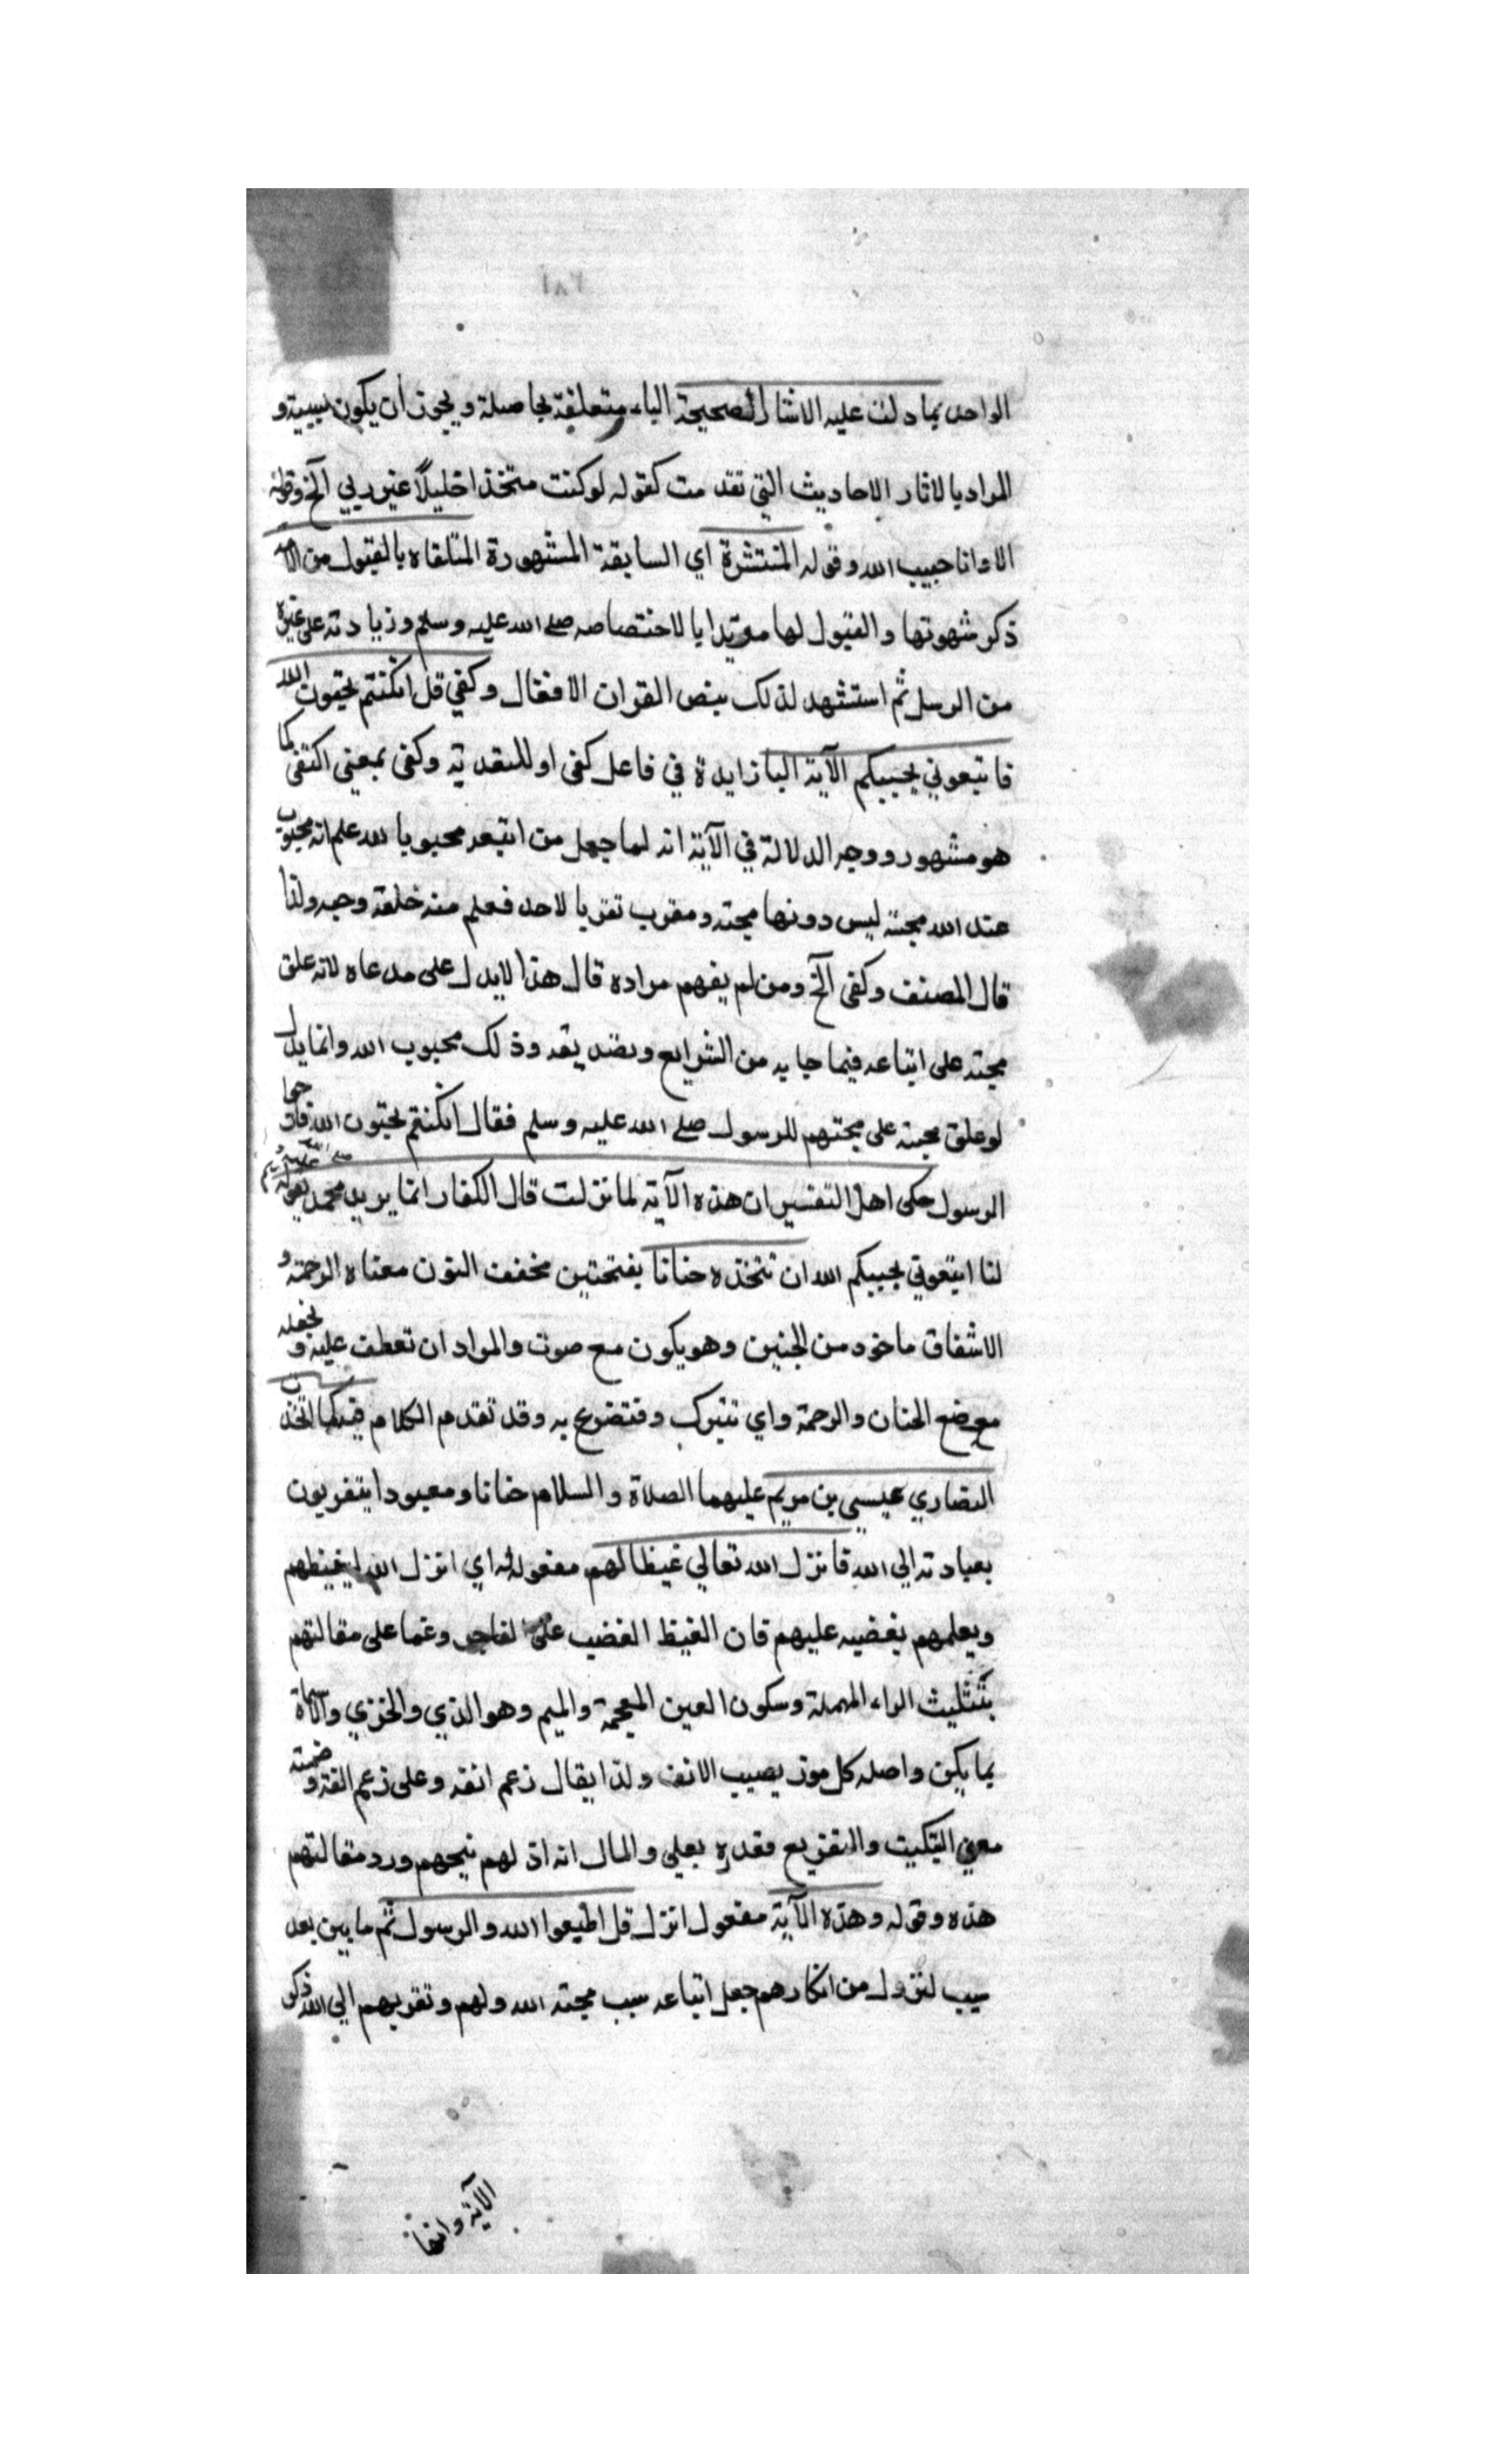 ٢٨١
الواحد بما دلت عليه الاثار الصحيحة الباء متعلقة بحاصلة ويجوز أن يكون سببية و
المراد بالاثار الاحاديث التي تقدمت كقوله لو كنت متخذا خليلاً غير ربي الخ وقوله
الا وانا حبيب الله وقوله المنتشرة اي السابقة المشهورة المتلقاه بالقبول من الامة
ذكر شهرتها والقبول لها مؤيدا يا لاختصاصه صلى الله عليه وسلم وزيادته على غيره
من الرسل ثم استشهد لذلك بنص القران الا فقال وكفي قل ان كنتم تحبون الله
فاتبعوني يحببكم الآية البا زايدة في فاعل كفى او للتعدية وكفى بمعنى اكتفى كما
هو مشهور ووجه الدلالة في الآية انه لما جعل من اتبعه محبوبا لله علم انه محبوب
عند الله محبة ليس دونها محبة ومقرب تقربا لاحد فعلم منه خلقة وحبه ولذا
قال المصنف وكفى الخ ومن لم يفهم مراده قال هذا لا يدل على مدعاه لانه علق
محبته على اتباعه فيما جا به من الشرايع وبضد يقه وذلك محبوب الله وانما يدل
لو علق محبته على محبتهم للرسول صلى الله عليه وسلم فقال ان كنتم تحبون الله فاحبوا
الرسول حكى اهل التفسير ان هذه الآية لما نزلت قال الكفار انما يريد محمد صلى الله عليه وسلم بقوله
لنا اتبعوني يحببكم الله ان نتخذه حنانا بفتحتين مخفف النون معناه الرحمة و
الاشفاق ماخوذ من الحنين وهو يكون مع صوت والمراد ان تعطف عليه و نجعله
موضع الحنان والرحمة واي نتبرك وفتضرع به وقد تقدم الكلام فيه كما اتخذت
النصاري عيسى بن مريم عليهما الصلاة والسلام حنانا ومعبودا يتقربون
بعبادته الى الله فانزل الله تعالي غيظا لهم مفعول له اي انزل الله ليغيظهم
ويعلمهم بغضبه عليهم فان الغيظ الغضب على وغما على مقالتهم
بتثليث الراء المهملة وسكون العين المعجمة والميم وهو الذي والخزي والاساة
بما يكن واصله كل موذ يصيب الانف ولذا يقال زعم انفه وعلى زعم انفه و ضمنه
معنى التبكيت والتقريع فقدره بعلي والمال انه اذ لهم نيجهم ورد مقالتهم
هذه وقوله وهذه الآية مفعول انزل قل اطيعوا الله والرسول ثم ما بين بعد
سبب لنزول من انكارهم جعل اتباعه سبب محبته الله ولهم وتقريبهم الي الله ذكر
الآية وانها